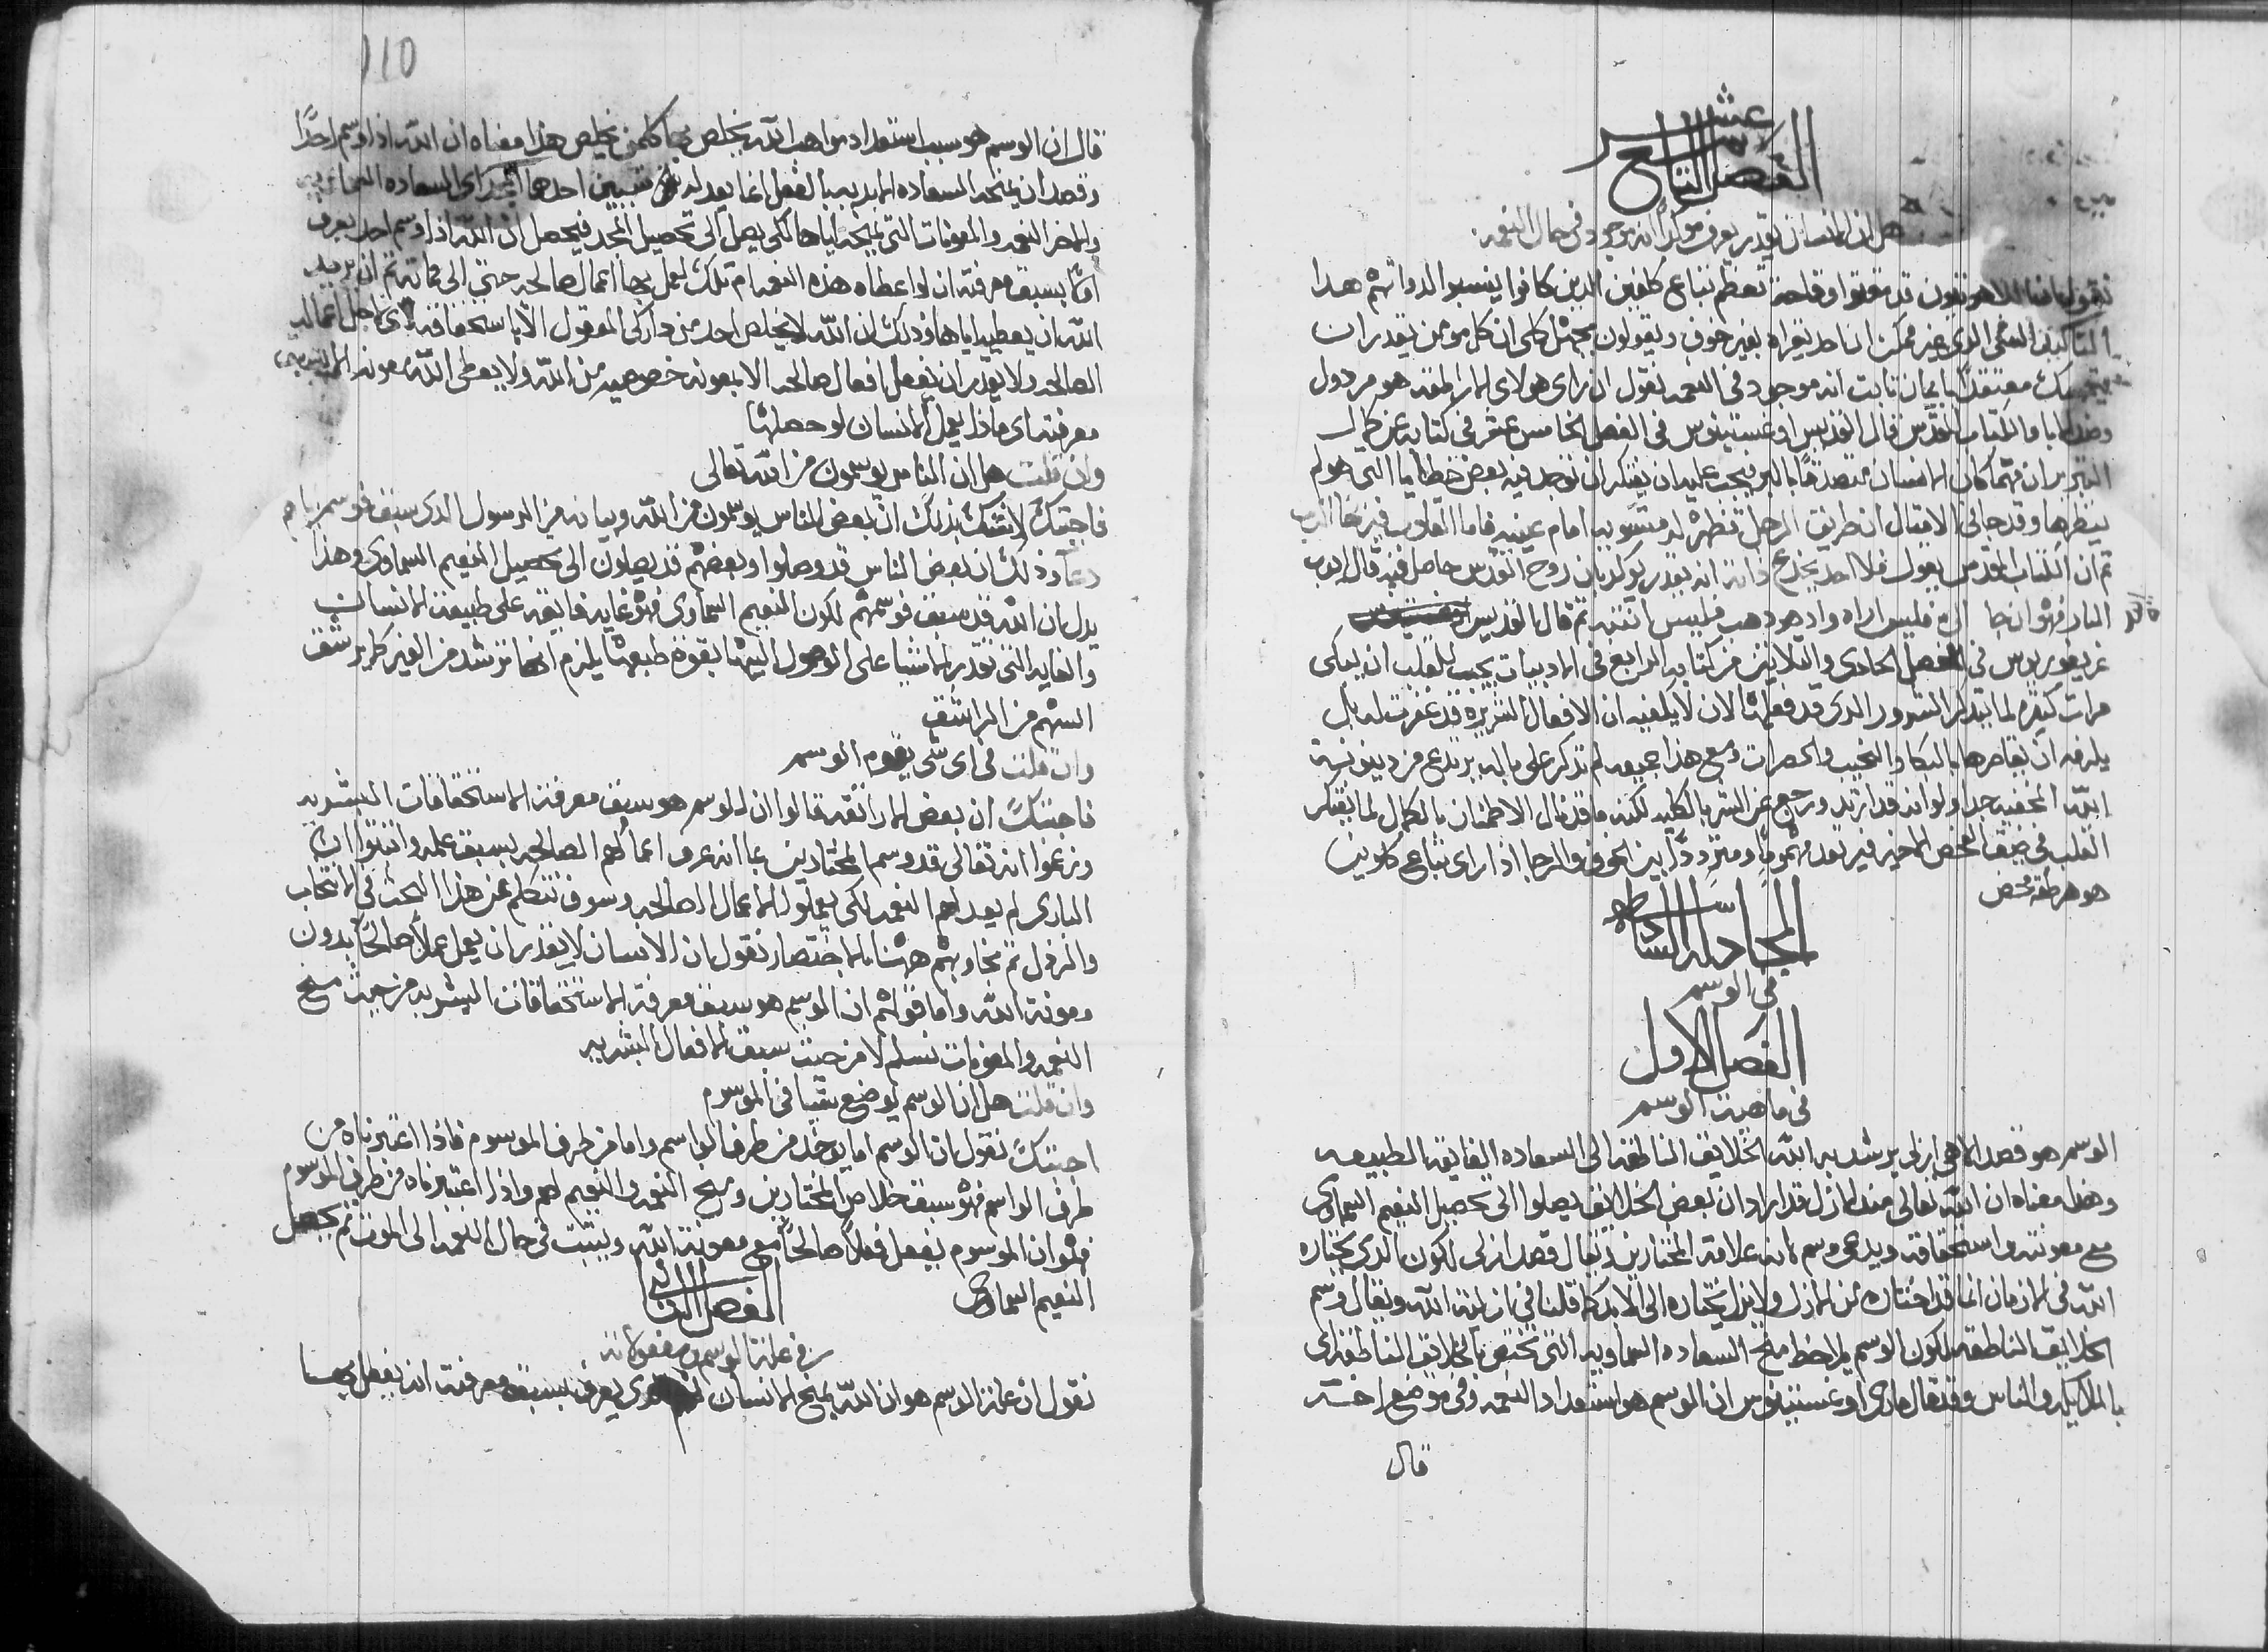 الفصل التاسع عشر
هل ان الانسان يقدر يعرف موكداً انه موجود في حال النعمه
نقول بعض اللاهوتيون قد تفوهوا وقاحة تعظم تباع كلفين الذين كانوا ينسبوا لذواتهم هدا
التاكيد الشي الذي غير ممكن ان احد يقراه بغير خوف ويقولون بجهل كلي ان كل مومن يقدر ان
يتمسك معتقداً بايمان ثابت انه موجود في النعمه نقول ان راي هولاي الاراطقه هو مردول
وضد الابا والكتاب المقدس قال القديس اوغسطينوس في الفصل الخامس عشر في كتابه عن كمال
التبرير ان مهما كان الانسان متصدقاً بالبر يجب عليه ان يفتكر ان توجد فيه بعض خطايا التي هو لم
ينظرها وقد جا في الامثال ان طريق الرجل تظهر له مستويه امام عينيه فاما القلوب فيزنها الرب
ثم ان الكتاب المقدس يقول فلا احد يخدع ذاته انه يقدر يوكد بان روح القدس حاصل فيه قال ايوب
البار فهو ان جا اليّ فليس اراه واد هو دهب فليس اتنبه ثم قال القديس
غريغوريوس في الفصل الحادي والتلاتين من كتابه الرابع في الادبيات يجب للقلب ان يبكي
مرات كتيره لما يتدكر الشرور الدي قد فعلها الان لا يكفيه ان الافعال الشريره قد غفرت له بل
يلزمه ان يقاصرها بالبكا والنحيب والحصرات ومع هذا جميعه لم تدكر على باله يرتدع من دينونة
الله المخفيه جداً ولو انه قد ارتد ورجع عن الشر بالكليه لكنه ما قد نال الاطمنان بالكمال لما يفتكر
القلب في ضيق الفحص الاخير فيرتعد مهموماً ومترددًا بين الخوف والرجا اذا راى تباع كلوين
هو هرطقه محض
المجادله السادسه
في الوسم
الفصل الاول
في ماهية الوسم
الوسم هو قصد الاهي ازلي يرشد به الله الخلايق الناطقه الى السعاده الفايقه الطبيعه
وهذا معناه ان الله تعالى منذ الازل قد اراد ان بعض الخلايق يصلوا الى تحصيل النعيم السماوي
مع معونته واستحقاقه ويدعى وسم بانه علامة المختارين ويقال قصد ازلي لكون الذي يختاره
الله في الازمان انما قد اختاره من الازل ولا يزل يختاره الى الابد كما قلنا في ازلية الله ويقال وسم
الخلايق الناطقه لكون الوسم يلاحظ منح السعاده السماويه التي تختص بالخلايق الناطقه اي
بالملايكه والناس وقد قال ماري اوغسطينوس ان الوسم هو استعداد النعمه وفي موضع اخر
قال
110
قال ان الوسم هو سبب استعداد مواهب الله يخلص بها كلمن يخلص هذا معناه ان الله اذا وسم احداً
وقصد ان يمنحه السعاده الابديه بالفعل انما يعد له شيين احدهما المجد اي السعاده السماويه
والاخر النعمه والمعونات التي يمنحه اياها لكي يصل الى تحصيل المجد فيحصل ان الله اذا وسم احد يعرف
اولاً بسبق معرفته ان لو اعطاه هذه النعمه ام تلك لعمل بها اعمال صالحه حتى الى مماته ثم ان يريد
الله ان يعطيه اياها وذلك ان الله لا يخلص احد من داركي المعقول الا باستحقاقه اي لاجل اعماله
الصالحه ولا يقدر ان يفعل افعال صالحه الا بمعونه خصوصيه من الله ولا يعطي الله معونه الا بسبق
معرفته اي ماذا يعمل الانسان لو حصلها
وان قلت هل ان الناس يوسمون من الله تعالى
فاجبتك لا شك بذلك ان بعض الناس يوسمون من الله وبيانه من الرسول الذي سبق فوسمهم اياهم
دعا وذلك ان بعض الناس قد وصلوا وبعضهم قد يصلون الى تحصيل النعيم السماوي وهذا
يدل بان الله قد سبق فوسمهم لكون النعيم السماوي فهو غايه فايقه على طبيعة الانسان
والغايه التي تقدر الاشيا على الوصول اليها بقوة طبعها يلزم انها ترشد من الغير كما يرشق
السهم من الراشق
وان قلت في اي شي يقوم الوسم
فاجبتك ان بعض الاراتقه قالوا ان الوسم هو سبق معرفة الاستحقاقات البشريه
وزعموا انه تعالى قد وسم المختارين بما انه عرف اعمالهم الصالحه بسبق علمه وانتتوا ان
الباري لم يعد لهم النعمه لكي يعملوا الاعمال الصالحه وسوف نتكلم عن هذا البحث في الانتخاب
والرذل ثم نجاوبهم ههنا بالاختصار نقول بان الانسان لا يقدر ان يعمل عملاً صالحاً بدون
معونة الله واما قولهم ان الوسم هو سبق معرفة الاستحقاقات البشريه من حيث منح
النعمه والمعونات نسلم لا من حيث سبق الافعال البشريه
وان قلت هل ان الوسم يوضع شيا في الموسوم
اجبتك نقول بان الوسم اما يوخد من طرف الواسم واما من طرف الموسوم فاذا اعتبرناه من
طرف الواسم فهو سبق خلاص المختارين ومنح النعمه والنعيم لهم واذا اعتبرناه من طرف الموسوم
فهو ان الموسوم يفعل فعلاً صالحاً مع معونة الله ويتبت في حال النعمه الى الموت ثم يحصل
النعيم السماوي
الفصل الثاني
في علة الوسم ومفعولاته
نقول ان علة الوسم هو ان الله يمنح الانسان الذي يعرف بسبق معرفته انه يفعل بها